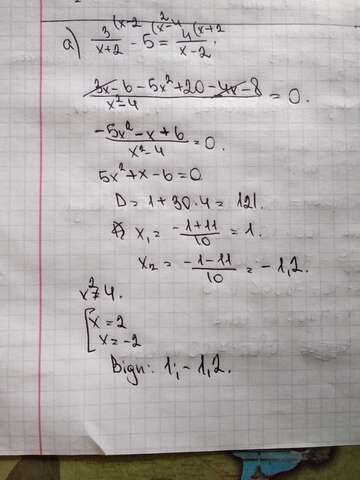 а) 3(x-2 / x+2 - 5(x²-4 = 4(x+2 / x-2 .
3x-6-5x²+20-4x-8 / x²-4 = 0.
-5x²-x+6 / x²-4 = 0.
5x²+x-6=0
D=1+30·4=121.
x₁ = -1+11 / 10 = 1.
x₂ = -1-11 / 10 = -1,2.
x²≠4.
[x=2
x=-2
Відп: 1; -1,2.